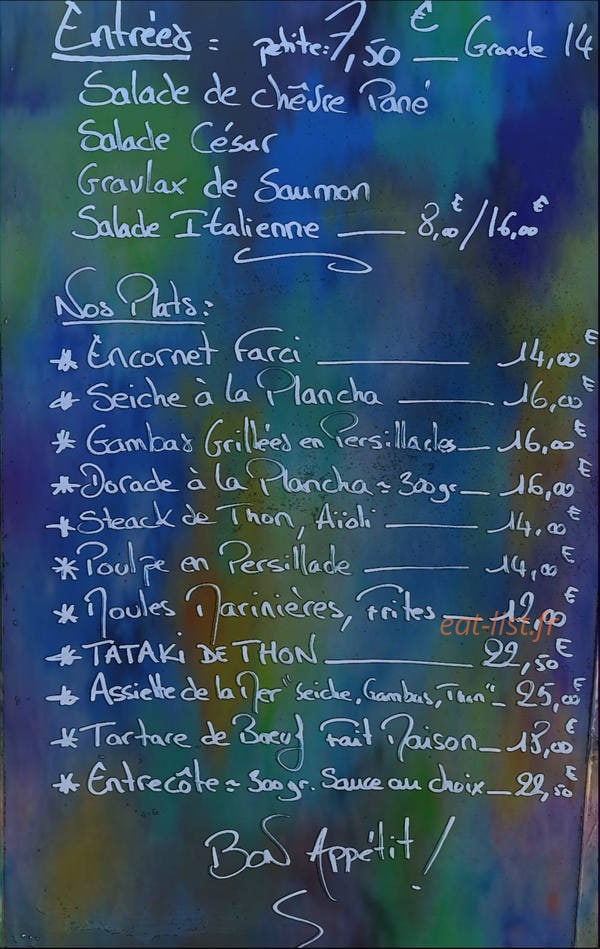 Entrées : petite: 7,50€ — Grande 14
Salade de chêvre Pané
Salade César
Gravlax de Saumon
Salade Italienne — 8,00€/16,00€
Nos Plats:
* Encornet Farci — 14,00€
* Seiche à la Plancha — 16,00€
* Gambas Grillées en Persillades — 16,00€
* Dorade à la Plancha ≈ 300gr — 16,00€
* Steack de Thon, Aïoli — 14,00€
* Poulpe en Persillade — 14,00€
* Moules Marinières, Frites — 12,00€
eat-list.fr
* TATAKi DE THON — 22,50€
* Assiette de la Mer "Seiche, Gambas, Thon" — 25,00€
* Tartare de Bœuf Fait Maison — 18,00€
* Entrecôte ≈ 300gr. Sauce au choix — 22,50€
Bon Appétit !